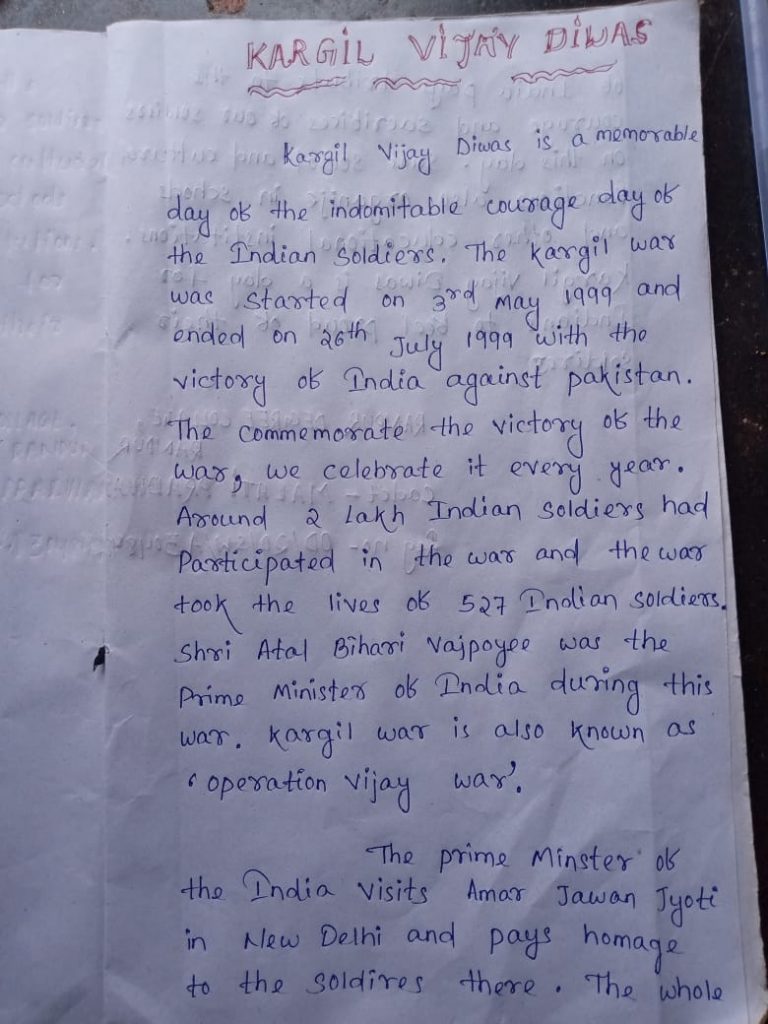 KARGIL VIJAY DIWAS
Kargil Vijay Diwas is a memorable
day of the indomitable courage day of
the Indian soldiers. The kargil war
was started on 3rd may 1999 and
ended on 26th July 1999 with the
victory of India against pakistan.
The commemorate the victory of the
war, we celebrate it every year.
Around 2 lakh Indian soldiers had
Participated in the war and the war
took the lives of 527 Indian soldiers.
Shri Atal Bihari Vajpoyee was the
Prime Minister of India during this
war. Kargil war is also known as
'operation vijay war'.
The prime Minster of
the India visits Amar Jawan Jyoti
in New Delhi and pays homage
to the soldires there. The whole